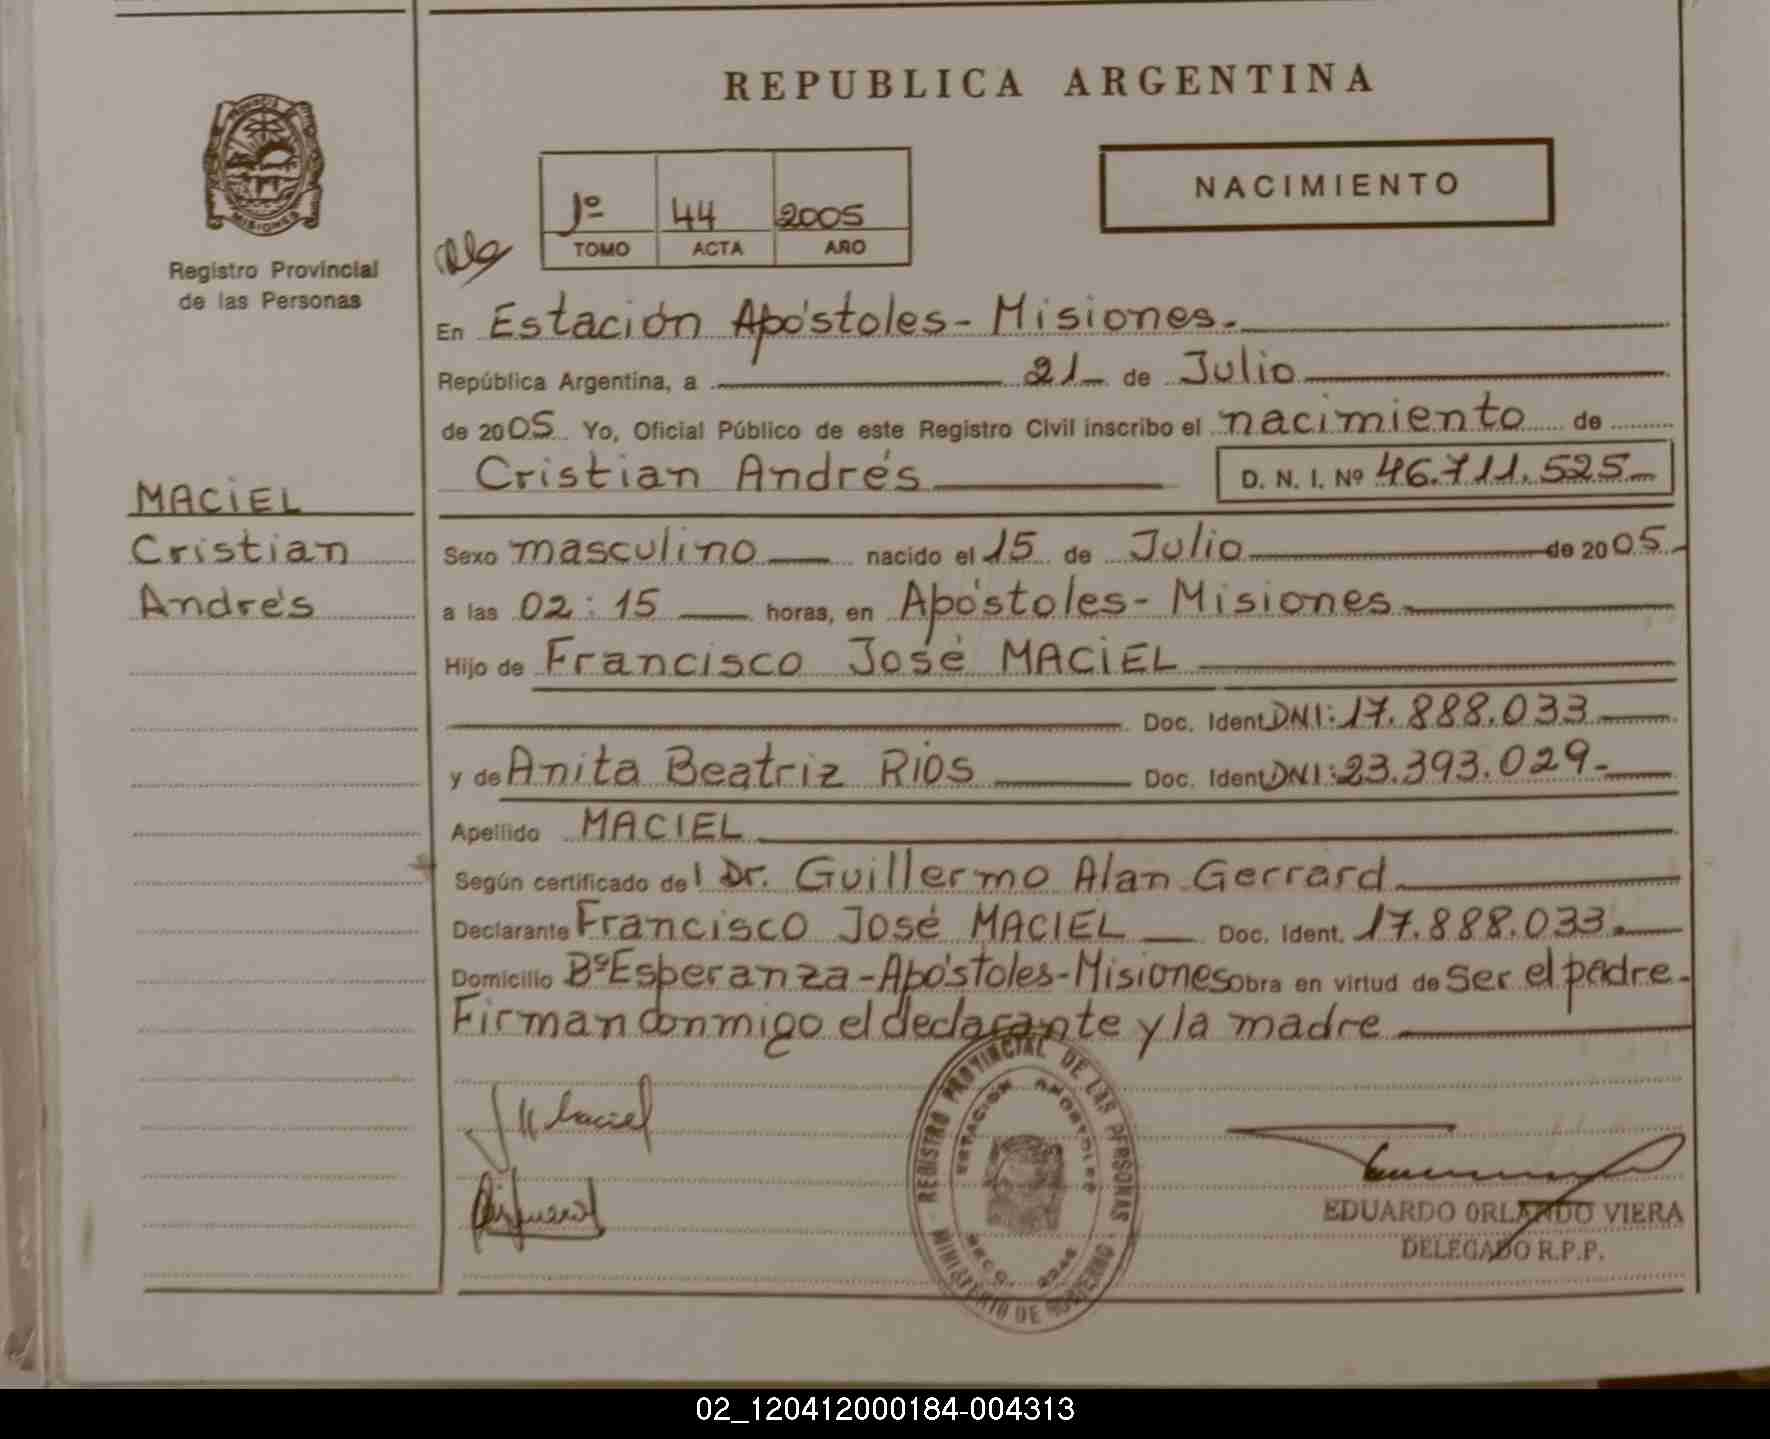 REPUBLICA ARGENTINA
NACIMIENTO
1º 44 2005
TOMO ACTA AÑO
MISIONES
Registro Provincial
de las Personas
En Estación Apóstoles - Misiones.
República Argentina, a 21 de Julio
de 2005 Yo, Oficial Público de este Registro Civil inscribo el nacimiento de
Cristian Andrés D. N. I. Nº 46.711.525
MACIEL
Cristian
Andrés
Sexo masculino nacido el 15 de Julio de 2005
a las 02:15 horas, en Apóstoles - Misiones
Hijo de Francisco José MACIEL
Doc. Ident DNI: 17.888.033
y de Anita Beatriz RIOS Doc. Ident DNI: 23.393.029.-
Apellido MACIEL
Según certificado del Dr. Guillermo Alan Gerrard
Declarante Francisco José MACIEL Doc. Ident. 17.888.033.
Domicilio Bº Esperanza - Apóstoles - Misiones obra en virtud de ser el padre.
Firman conmigo el declarante y la madre
Maciel
REGISTRO PROVINCIAL DE LAS PERSONAS
ESTACION APOSTOLES
MINISTERIO DE GOBIERNO
EDUARDO ORLANDO VIERA
DELEGADO R.P.P.
02_120412000184-004313